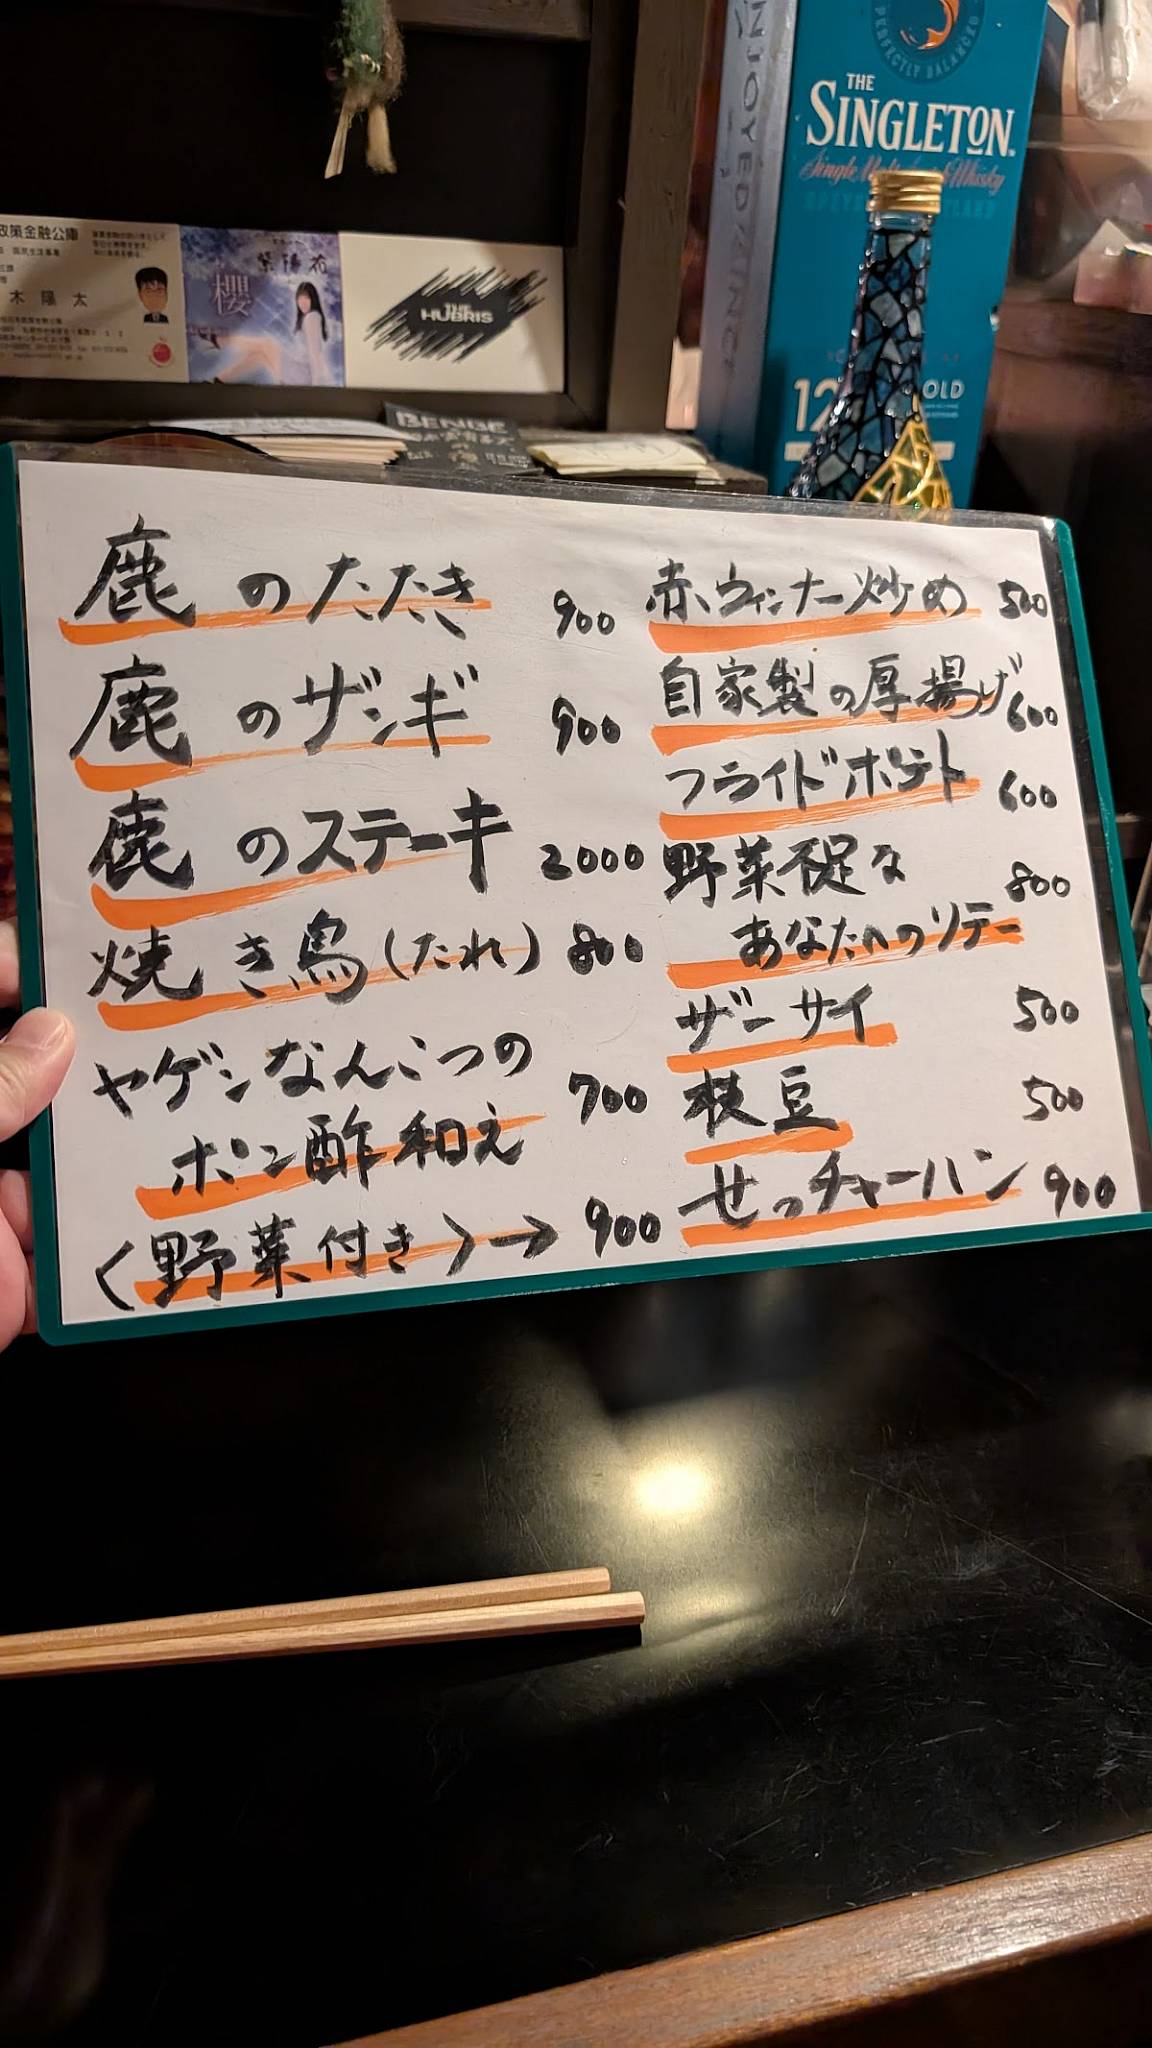 THE
SINGLETON
Single Malt Scotch Whisky
12
OLD
政策金融公庫
木 陽 太
櫻
紫陽花
THE
HUBRIS
BENGE
鹿のたたき 900
鹿のザンギ 900
鹿のステーキ 2000
焼き鳥(たれ) 800
ヤゲンなんこつの
ポン酢和え 700
〈野菜付き〉→ 900
赤ウィンナー炒め 500
自家製の厚揚げ 600
フライドポテト 600
野菜不足な 800
あなたへのソテー
ザーサイ 500
枝豆 500
せっチャーハン 900